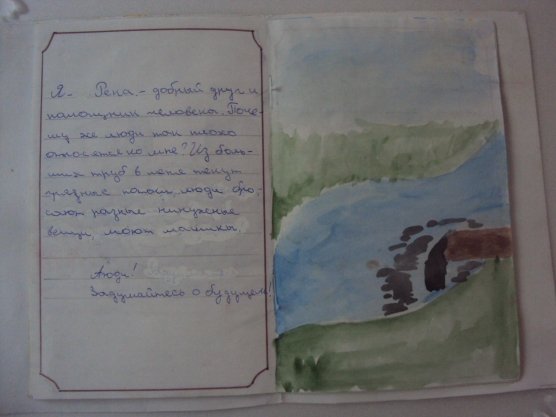 Я - Река, - добрый друг и
помощник человека. Поче-
му же люди так плохо
относятся ко мне? Из боль-
ших труб в меня текут
грязные потоки, люди бро-
сают разные ненужные
вещи, моют машины.
Люди!
Задумайтесь о будущем!